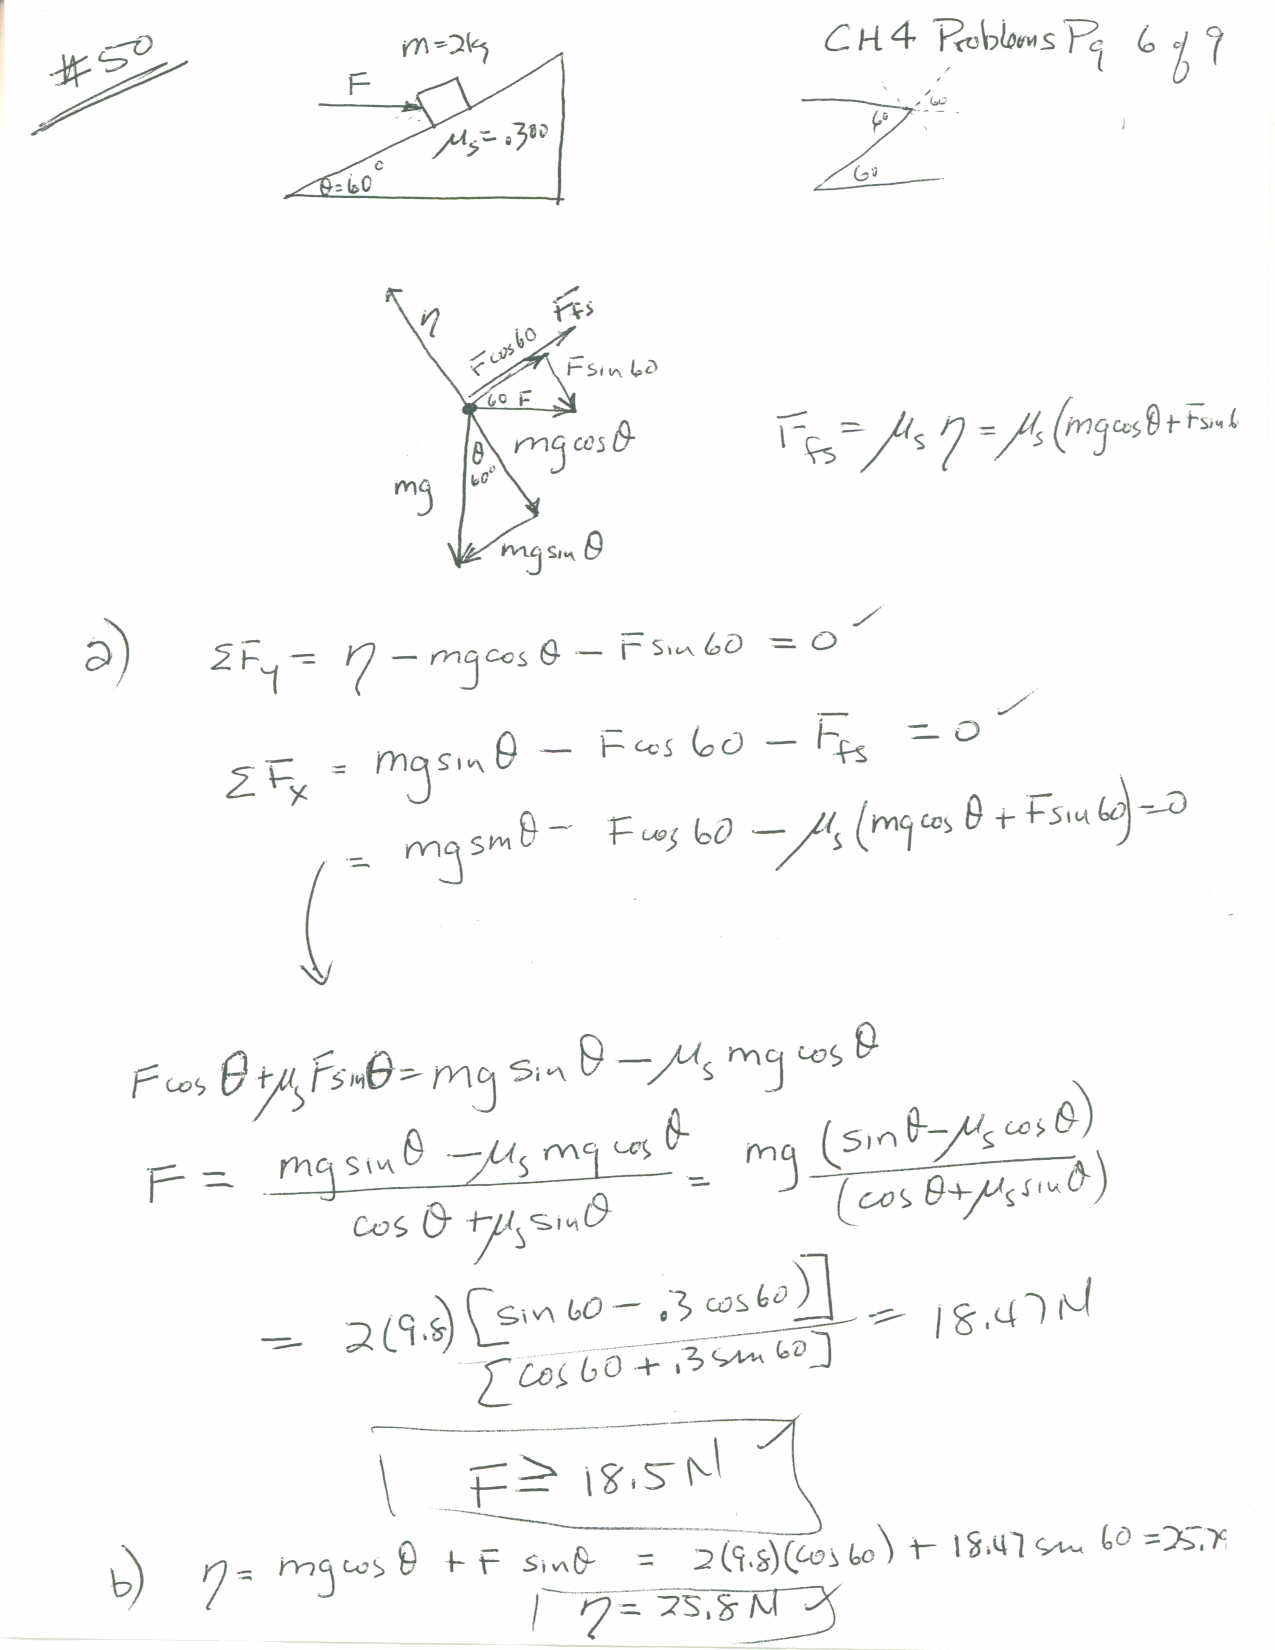 #50
m=2kg
CH4 Problems Pg 6 of 9
F
μs=.300
θ=60°
60
60
60
η
Ffs
Fcos60
Fsin60
60 F
θ
60°
mg cosθ
mg
mg sin θ
Ffs = μs η = μs (mg cosθ + Fsin6
a) ΣFy = η − mg cos θ − F sin 60 = 0 ✓
ΣFx = mg sin θ − F cos 60 − Ffs = 0 ✓
= mg sin θ − F cos 60 − μs (mg cos θ + F sin 60) = 0
F cos θ + μs F sin θ = mg sin θ − μs mg cos θ
F = mg sin θ − μs mg cos θ / cos θ + μs sin θ = mg (sin θ − μs cos θ) / (cos θ + μs sin θ)
= 2(9.8) [sin 60 − .3 cos 60)] / [cos 60 + .3 sin 60] = 18.47 N
F ≥ 18.5 N
b) η = mg cos θ + F sin θ = 2(9.8)(cos 60) + 18.47 sin 60 = 25.79
η = 25.8 N